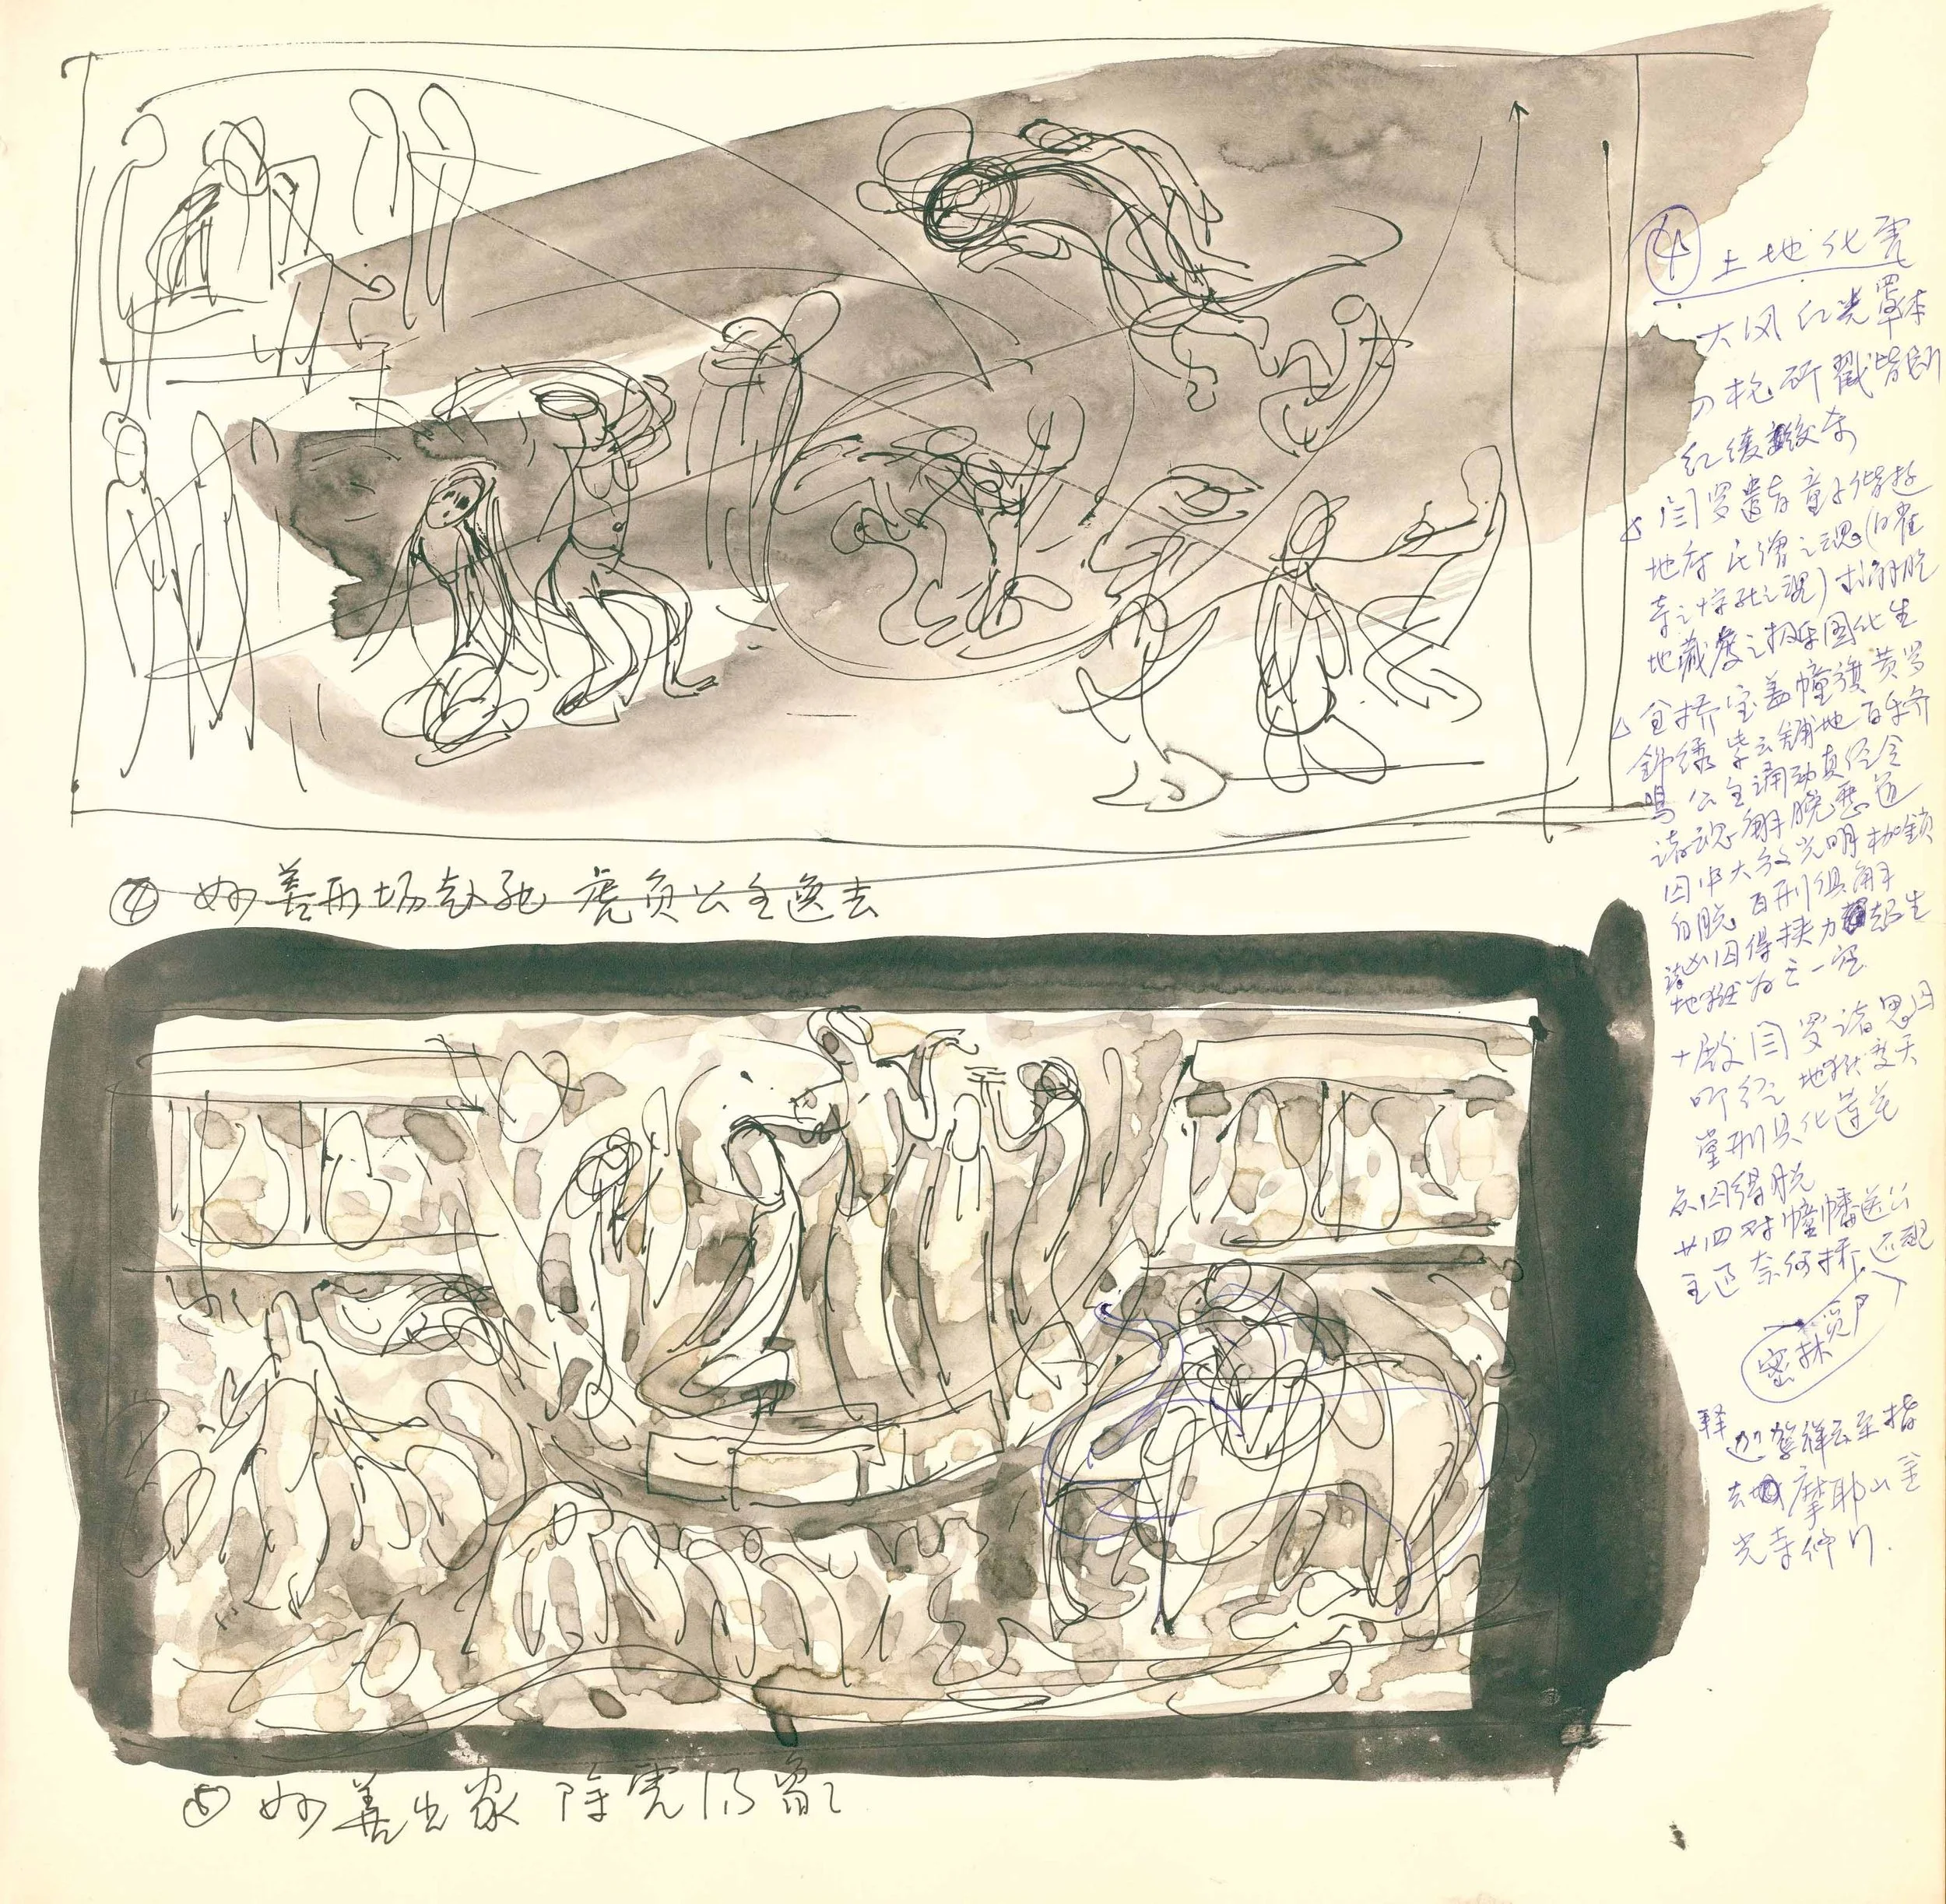 ④ 妙善刑场赴死 虎负公主逸去
⑤ 妙善出家 降虎
④ 土地化虎
大风红光罩体
刀枪斫戳皆断
红绫绞杀
闫罗遣青童子偕游
地府 氏僧之魂(白雀
寺之惊死之魂)求解脱
地藏度之极乐国化生
金桥宝盖幢旗黄罗
錦绣 紫云铺地 百乐齐
鸣 公主诵动真经令
诸魂解脱恶道
囚中大放光明 枷鎖
自脱 百刑俱解
诸囚得扶力超生
地狱为之一空
十殿闫罗诸恩囚
叩经 地狱变天
堂刑具化莲花
众囚得脱
廿四对幢幡送公
主过奈何桥 还魂
密林
释迦驾祥云至指
去 摩耶山金
光寺修行.